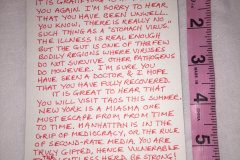 IT IS GRATIFYING TO
YOU AGAIN. I'M SORRY TO HEAR
THAT YOU HAVE BEEN UNWELL.
YOU KNOW, THERE IS REALLY NO
SUCH THING AS A "STOMACH VIRUS."
THE ILLNESS IS REAL ENOUGH
BUT THE GUT IS ONE OF THE FEW
BODILY REGIONS WHERE VIRUSES
DO NOT SURVIVE. OTHER PATHOGENS
DO HOWEVER. I'M SURE YOU
HAVE BEEN A DOCTOR & I HOPE
THAT YOU HAVE FULLY RECOVERED.
IT IS GREAT TO HEAR THAT
YOU WILL VISIT TAOS THIS SUMMER.
NEW YORK IS A MIASMA ONE
MUST ESCAPE FROM FROM TIME
TO TIME. MANHATTAN IS IN THE
GRIP OF MEDIOCRITY, OR THE RULE
OF SECOND-RATE MEDIA. YOU ARE
TRULY GIFTED, HENCE VULNERABLE
HERD. BE STRONG!
2
3
4
5